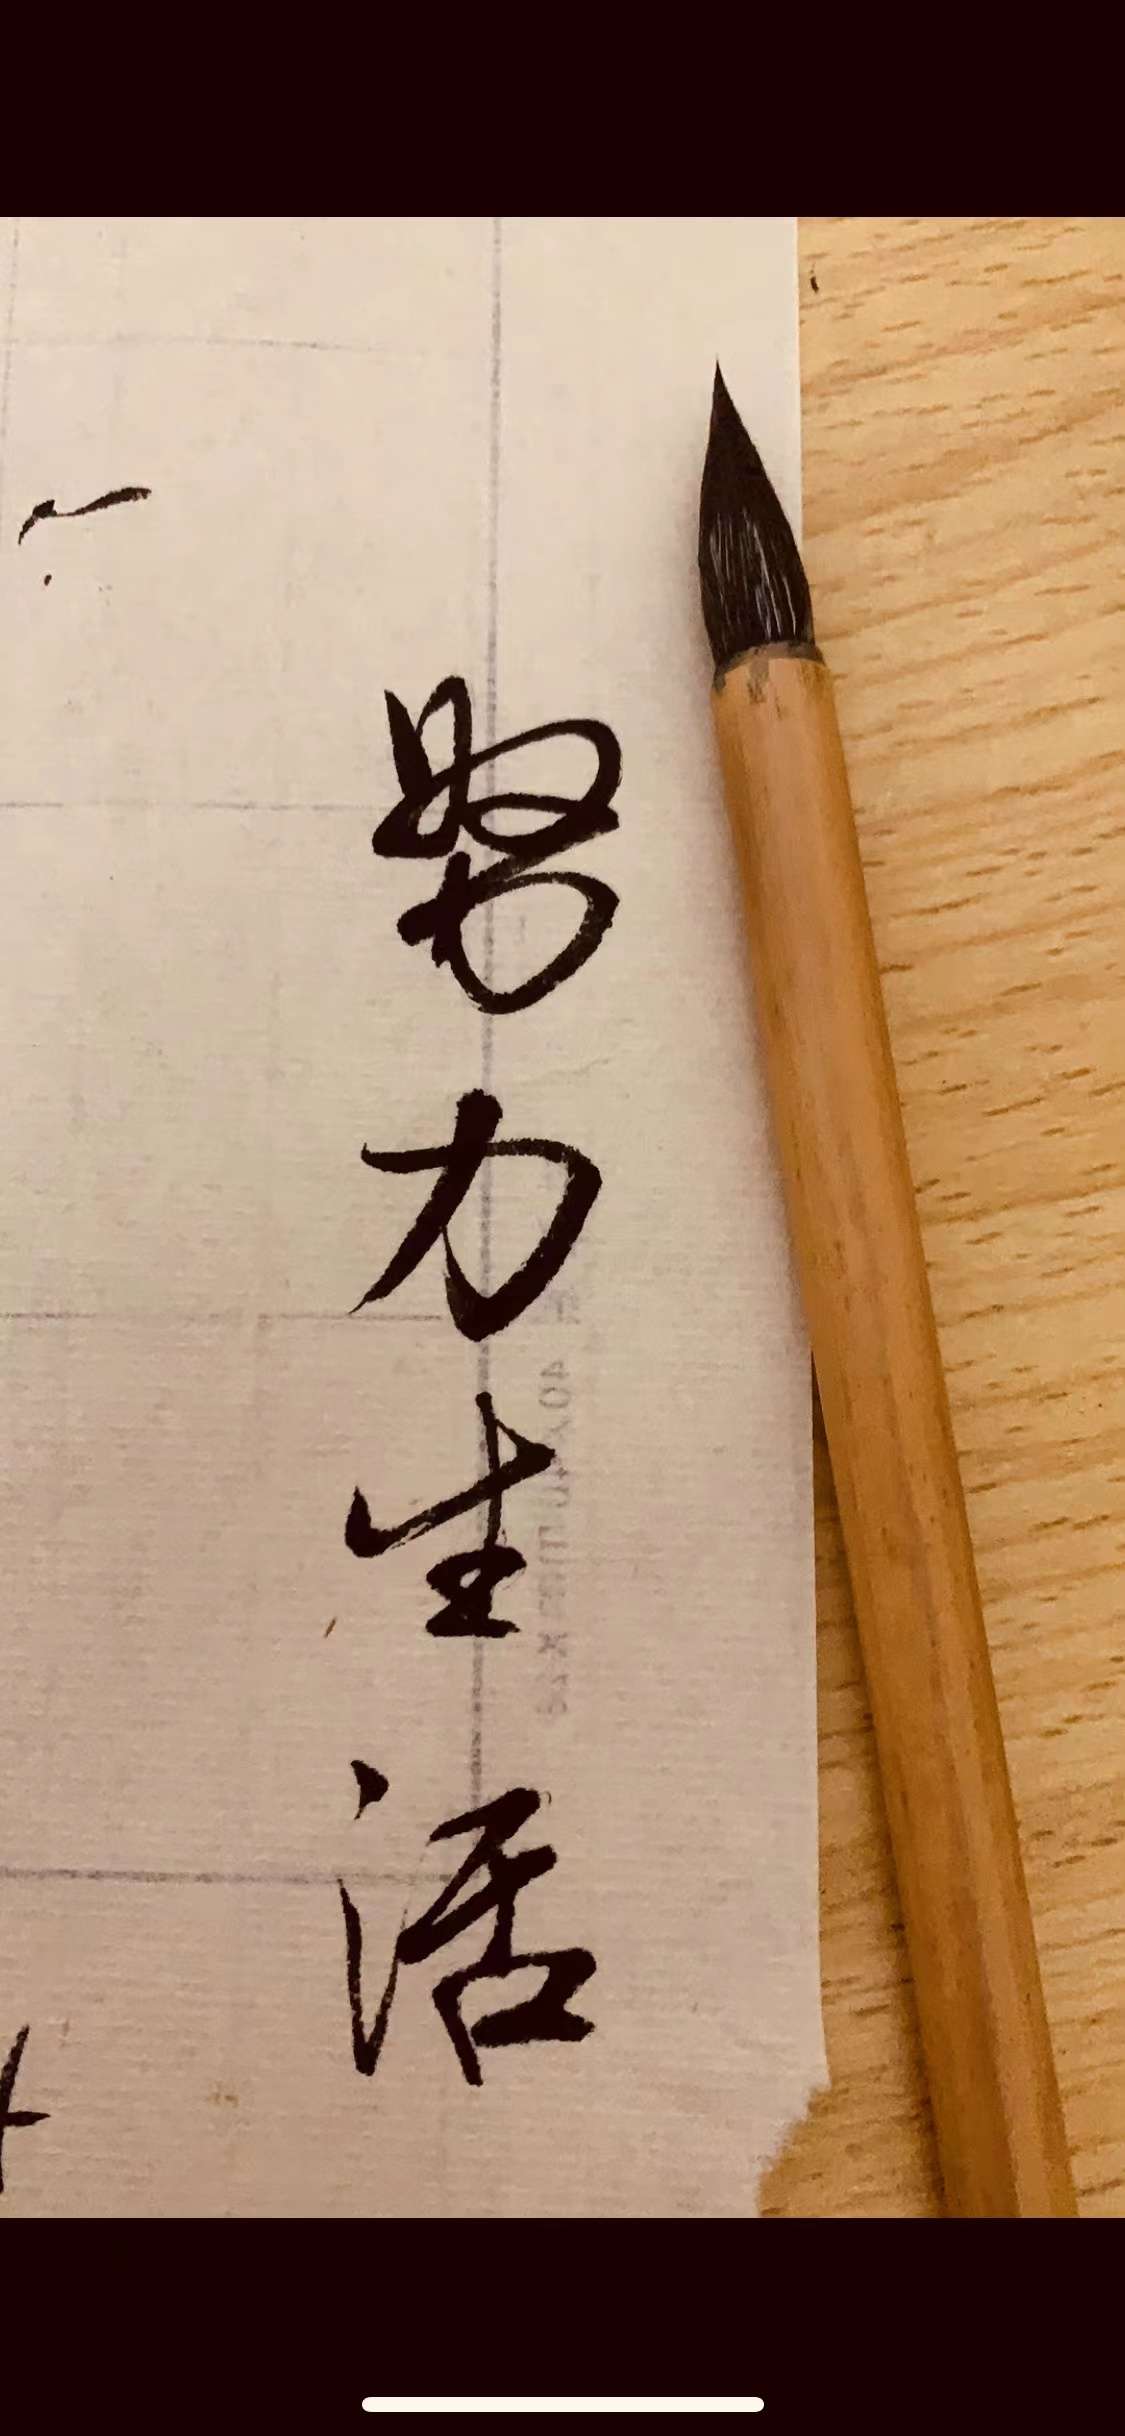 努力生活